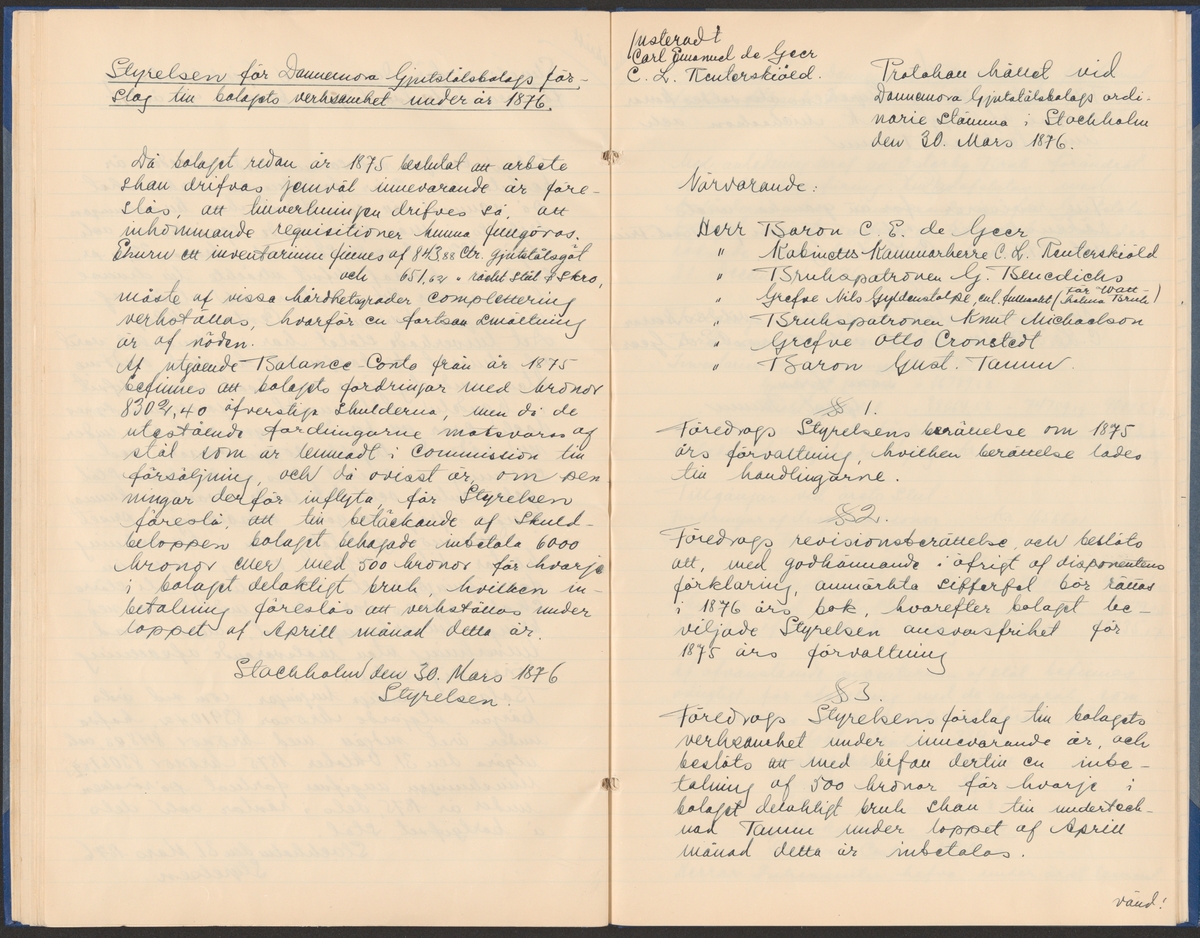 Styrelsen för Dannemora Gjutstålsbolags för-
slag till bolagets verksamhet under år 1876.
Då bolaget redan år 1875 beslutat att arbete
skall drifvas jemväl innevarande år före-
slås, att tillverkningen drifves så, att
inkommande requisitioner kunna fullgöras.
Ehuru ett inventarium finnes af 843,88 Ctr. gjutstålsgöt
och 651,62 " räckt stål & skro,
måste af vissa hårdhetsgrader complettering
verkställas, hvarför en fortsatt smältning
är af nöden.
Af utgående Balance-Conto från år 1875
befinnes att bolagets fordringar med kronor
8302,40 öfverstiga skulderna, men då de
utestående fordringarne motsvaras af
stål som är lemnadt i commission till
försäljning, och då ovisst är, om pen
ningar derför inflyta, får Styrelsen
föreslå, att till betäckande af skuld-
beloppen bolaget behagade inbetala 6000
kronor eller med 500 kronor för hvarje
i bolaget delaktigt bruk, hvilken in-
betalning föreslås att verkställas under
loppet af Aprill månad detta år.
Stockholm den 30. Mars 1876
Styrelsen.
Justeradt
Carl Emanuel de Geer
C. L. Reuterskiöld.
Protokoll hållet vid
Dannemora Gjutstålsbolags ordi-
narie stämma i Stockholm
den 30. Mars 1876.
Närvarande:
Herr Baron C. E. de Geer
" Kabinetts Kammarherre C. L. Reuterskiöld
" Brukspatronen G. Benedicks
" Grefve Nils Gyldenstolpe, enl. fullmakt (för Watt-
holma Bruk)
" Brukspatronen Knut Michaelson
" Grefve Otto Cronstedt
" Baron Gust. Tamm.
§ 1.
Föredrogs Styrelsens berättelse om 1875
års förvaltning, hvilken berättelse lades
till handlingarne.
§ 2.
Föredrogs revisionsberättelse, och beslöts
att, med godkännande i öfrigt af disponentens
förklaring, anmärkta sifferfel bör rättas
i 1876 års bok, hvarefter bolaget be-
viljade Styrelsen ansvarsfrihet för
1875 års förvaltning
§ 3.
Föredrogs Styrelsens förslag till bolagets
verksamhet under innevarande år, och
beslöts att med bifall dertill en inbe-
talning af 500 kronor för hvarje i
bolaget delaktigt bruk skall till underteck-
nad Tamm under loppet af Aprill
månad detta år inbetalas.
vänd!